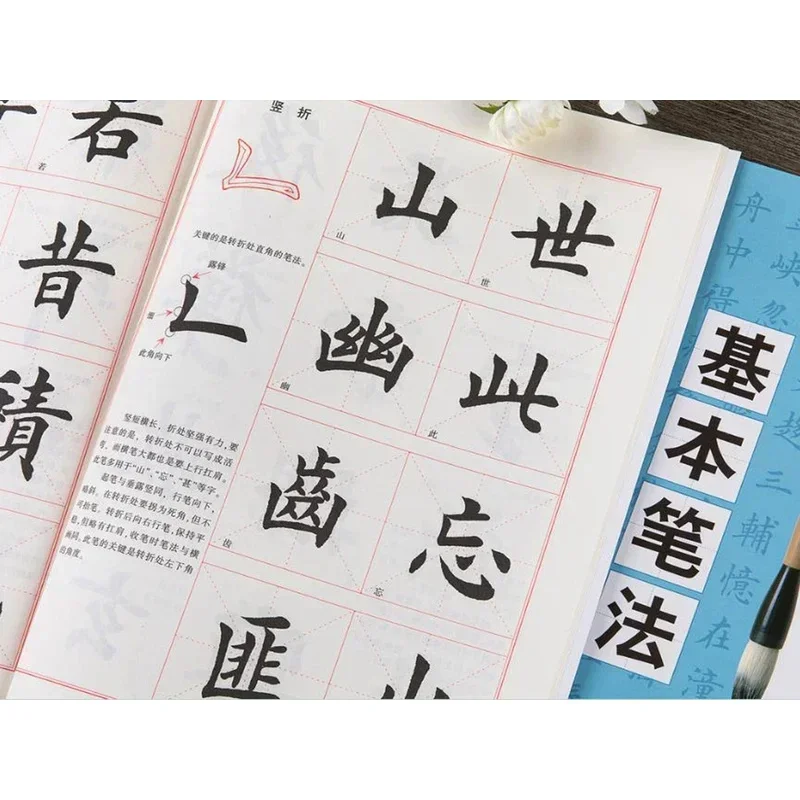 若
若
昔
積
竖折
关键的是转折处直角的笔法。
露锋
此角向下
竖短横长，折处坚强有力，要
注意的是，转折处不可以写成活
弯，而横笔大都也是要上行扛肩。
此笔多用于“山”，“忘”，“甚”等字。
起笔与垂露竖同，行笔向下，
略斜，在转折处要拐为死角，但不
可抬笔，转折后向右行笔，保持平
稳，但略有扛肩，收笔时笔法与横
画同，此笔的关键是转折处左下角
的角度。
山 世
山 世
幽 此
幽 此
齒 忘
齿 忘
匪
基
本
笔
法
舟中得
峡忽
三輔憶在潼